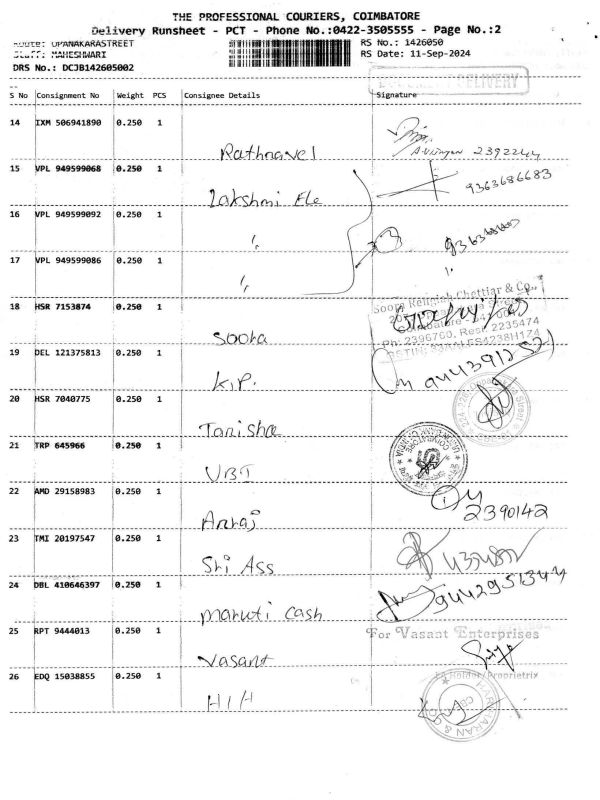 THE PROFESSIONAL COURIERS, COIMBATORE
Delivery Runsheet - PCT - Phone No.:0422-3505555 - Page No.:2
Route: OPANAKARASTREET
RS No.: 1426050
Staff: MAHESHWARI
RS Date: 11-Sep-2024
DRS No.: DCJB142605002
DELIVERY
S No Consignment No Weight PCS Consignee Details Signature
14 IXM 506941890 0.250 1
Rathnavel 2392244
15 VPL 949599068 0.250 1
Lakshmi Ele 9363686683
16 VPL 949599092 0.250 1
"
17 VPL 949599086 0.250 1
"
18 HSR 7153874 0.250 1
Soora
Chettiar & Co.,
Coimbatore
Ph: 2396760, Resi: 2235474
19 DEL 121375813 0.250 1
K.P.
20 HSR 7040775 0.250 1
Tanisha
21 TRP 645966 0.250 1
UBI
22 AMD 29158983 0.250 1
2390142
23 TMI 20197547 0.250 1
Sri Ass
24 DBL 410646397 0.250 1
maruti cash 9442951344
25 RPT 9444013 0.250 1
For Vasant Enterprises
Vasant
26 EDQ 15038855 0.250 1
PA Holder/Proprietrix
H/H